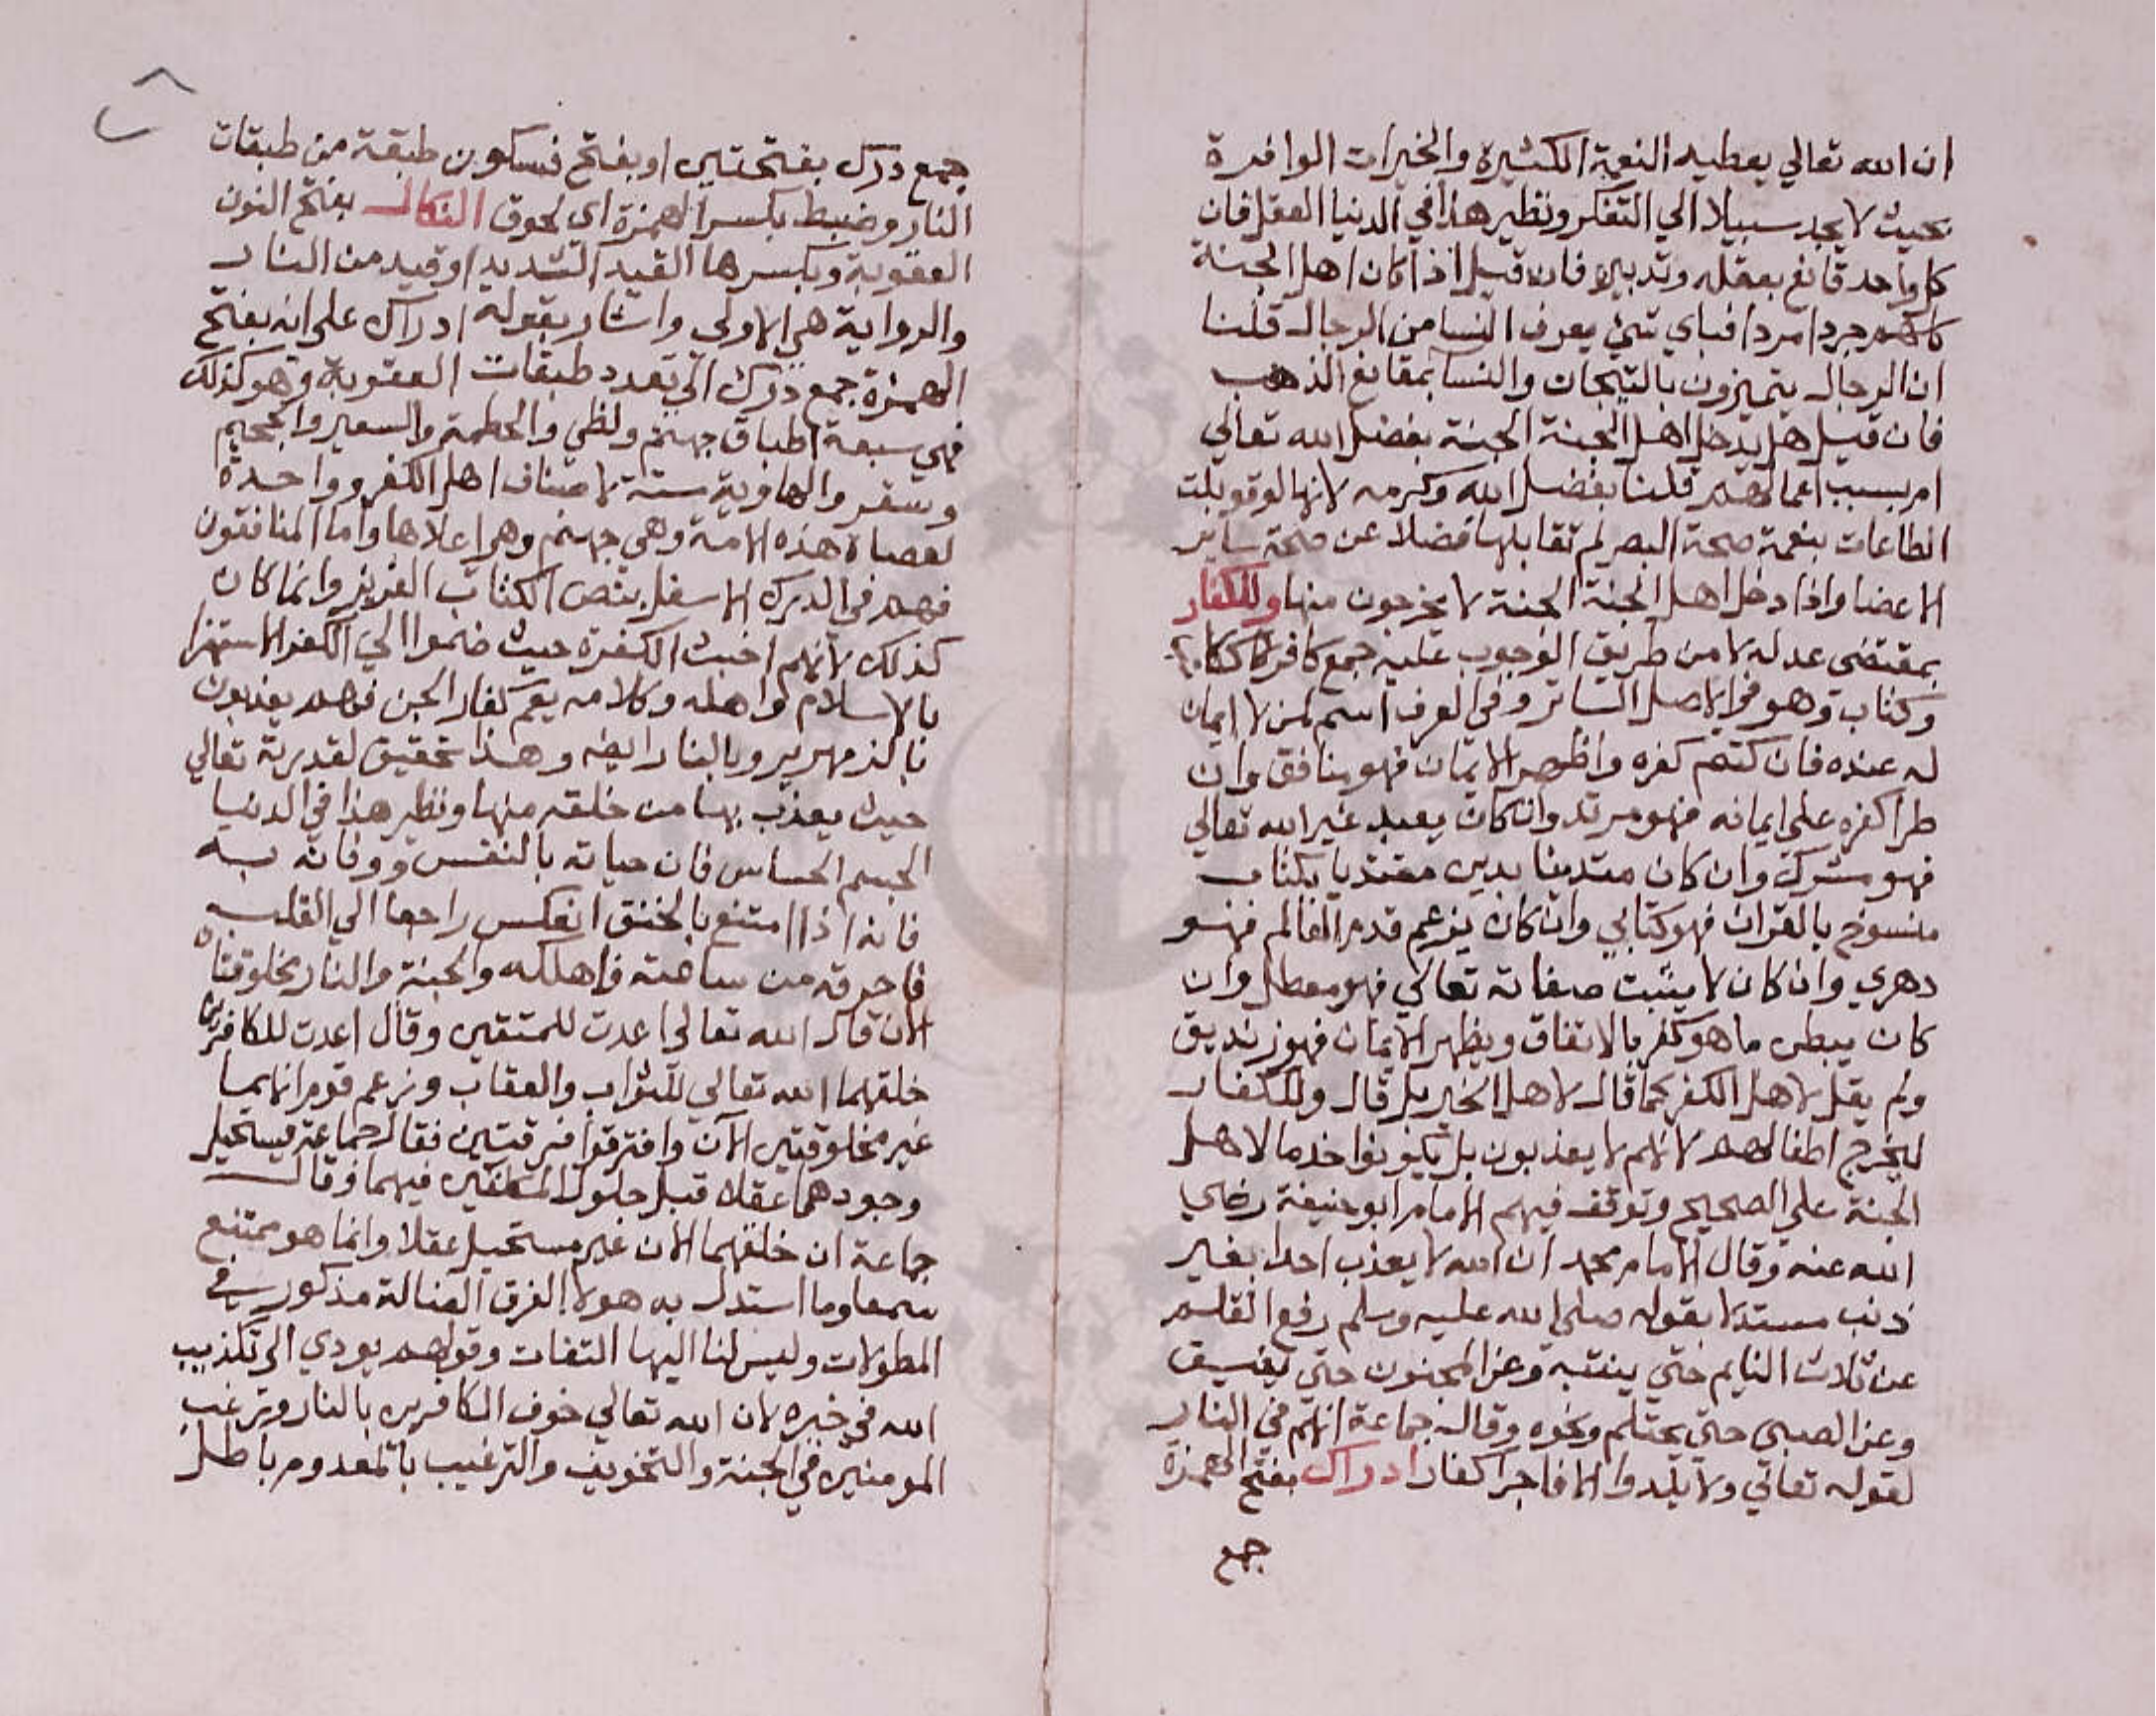 ان الله تعالي يعطيه النعمة الكثيرة والخيرات الوافرة
بحيث لا يجد سبيلا الي التفكر ونظير هذا في الدنيا العقل فان
كل واحد قانع بعقله وتدبيره فان قيل اذا كان اهل الجنة
كلهم جردا مردا فباي شئ يعرف النسا من الرجال قلنا
ان الرجال يتميزون بالتيجات والنسا بمقانع الذهب
فان قيل هل يدخل اهل الجنة الجنة بفضل الله تعالي
ام بسبب اعمالهم قلنا بفضل الله وكرمه لانها لو قوبلت
الطاعات بنعمة صحة البصر لم تقابلها فضلا عن صحة ساير
الاعضا واذا دخل اهل الجنة الجنة لا يخرجون منها وللكفار
بمقتضى عدله لا من طريق الوجوب عليه جمع كافر
وكتاب وهو في الاصل الساتر وفي العرف اسم لمن لا ايمان
له عنده فان كتم كفره واظهر الايمان فهو منافق وان
طرا كفره علي ايمانه فهو مرتد وان كان يعبد غير الله تعالي
فهو مشرك وان كان متدينا بدين مقتديا بكتاب
منسوخ بالقران فهو كتابي وان كان يزعم قدم العالم فهو
دهري وان كان لا يثبت صفاته تعالي فهو معطل وان
كان يبطن ما هو كفر بالاتفاق ويظهر الايمان فهو زنديق
ولم يقل لاهل الكفر كما قال لاهل الخير بل قال وللكفار
ليخرج اطفالهم لانهم لا يعذبون بل يكونوا خدما لاهل
الجنة علي الصحيح وتوقف فيهم الامام ابو حنيفة رضي
الله عنه وقال الامام محمد ان الله لا يعذب احدا بغير
ذنب مستدلا بقوله صلي الله عليه وسلم رفع القلم
عن ثلاث النايم حتي ينتبه وعن المجنون حتي يفيق
وعن الصبي حتي يحتلم ونحوه وقال جماعة انهم في النار
لقوله تعالي ولا يلدوا الا فاجرا كفارا ادراك بفتح الهمزة
جمع
جمع درك بفتحتين او بفتح فسكون طبقة من طبقات
النار وضبط بكسر الهمزة اي لحوق النكال بفتح النون
العقوبة وبكسرها القيد الشديد او قيد من النار
والرواية هي الاولي واشار بقوله ادراك علي انه بفتح
الهمزة جمع درك الي تعدد طبقات العقوبة وهو كذلك
فهي سبعة اطباق جهنم ولظي والحطمة والسعير والجحيم
وسقر والهاوية ستة لاصناف اهل الكفر وواحدة
لعصاة هذه الامة وهي جهنم وهي اعلاها واما المنافقون
فهم في الدرك الاسفل بنص الكتاب العزيز وانما كان
كذلك لانهم اخبث الكفرة حيث ضموا الي الكفر الاستهزا
بالاسلام واهله وكلامه يعم كفار الجن فهم يعذبون
بالزمهرير وبالنار ايضا وهذا تحقيق لقدرته تعالي
حيث يعذب بها من خلقه منها ونظير هذا في الدنيا
الجسم الحساس فان حياته بالنفس ووفاته به
فانه اذا امتنع بالخنق انعكس راجعا الي القلب
فاحرقه من ساعته فاهلكه والجنة والنار مخلوقتان
الان قال الله تعالي اعدت للمتقين وقال اعدت للكافرين
خلقهما الله تعالي للثواب والعقاب وزعم قوم انهما
غير مخلوقتين الآن وافترقوا فرقتين فقال جماعة يستحيل
وجودهما عقلا قبل حلول المكلفين فيهما وقال
جماعة ان خلقهما الان غير مستحيل عقلا وانما هو ممتنع
سمعا وما استدل به هولاء الفرق الضالة مذكور في
المطولات وليس لنا اليها التفات وقولهم يودي الي تكذيب
الله في خبره لان الله تعالي خوف الكافرين بالنار وترغيب
المومنين في الجنة والتخويف والترغيب بالمعدوم باطل